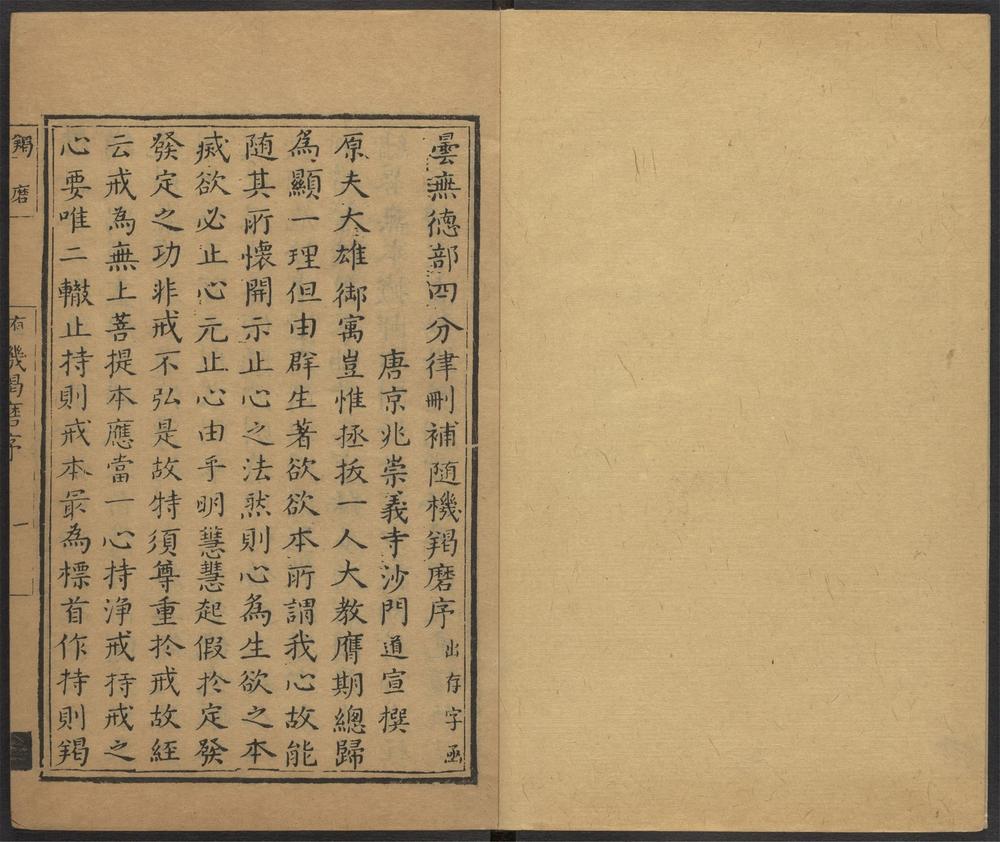 曇無德部四分律刪補随機羯磨序 出存字函
唐京兆崇義寺沙門 道宣 撰
原夫大雄御㝢豈惟拯拔一人大教膺期緫歸
為顯一理但由群生著欲欲本所謂我心故能
随其所懷開示止心之法然則心為生欲之本
滅欲必止心元止心由乎明慧慧起假於定發
發定之功非戒不弘是故特須尊重於戒故経
云戒為無上菩提本應當一心持浄戒持戒之
心要唯二轍止持則戒本㝡為標首作持則羯
羯磨
有 機羯磨序
一